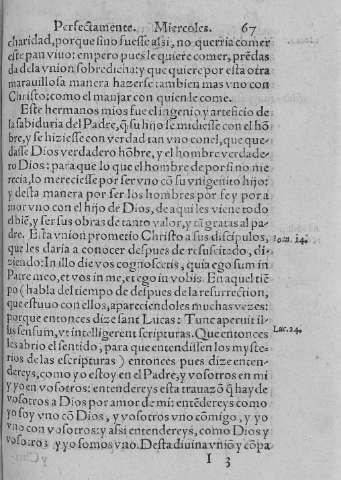 Perfectamente. Miercoles. 67
charidad, porque sino fuesse assi, no querria comer
este pan viuo: empero pues le quiere comer, prẽdas
da dela vnion sobredicha: y que quiere por esta otra
marauillosa manera hazerse tambien mas vno con
Christo: como el manjar con quien le come.
Este hermanos mios fue el ingenio y arteficio de
la sabiduria del Padre, q̃ su hijo se midiesse con el hõ
bre, y se hiziesse con verdad tan vno con el, que que-
dasse Dios verdadero hõbre, y el hombre verdade-
ro Dios: para que lo que el hombre de por si no me
recia, lo mereciesse por ser vno cõ su vnigenito hijo:
y desta manera por ser los hombres por fe y por a
mor vno con el hijo de Dios, de aqui les viene todo
el biẽ, y ser sus obras de tanto valor, y tã gratas al pa-
dre. Esta vnion prometio Christo a sus discipulos,
que les daria a conocer despues de resuscitado, di-
ziendo: In illo die vos cognoscetis, quia ego sum in
Patre meo, et vos in me, et ego in vobis. En aquel tiẽ-
po (habla del tiempo de despues de la resurrection,
que estuuo con ellos, apareciendoles muchas vezes:
porque entonces dize sant Lucas: Tunc aperuit il-
lis sensum, vt intelligerent scripturas. Que entonces
les abrio el sentido, para que entendissen los myste-
rios de las escripturas) entonces pues dize enten-
dereys, como yo estoy en el Padre, y vosotros en mi
y yo en vosotros: entendereys esta trauazõ q̃ hay de
vosotros a Dios por amor de mi: entẽdereys como
yo soy vno cõ Dios, y vosotros vno cõmigo, y yo
vno con vosotros: y assi entendereys, como Dios y
vosotros y yo somos vno. Desta diuina vniõ y cõpa
I 3
Ioan. 14.
Luc. 24.